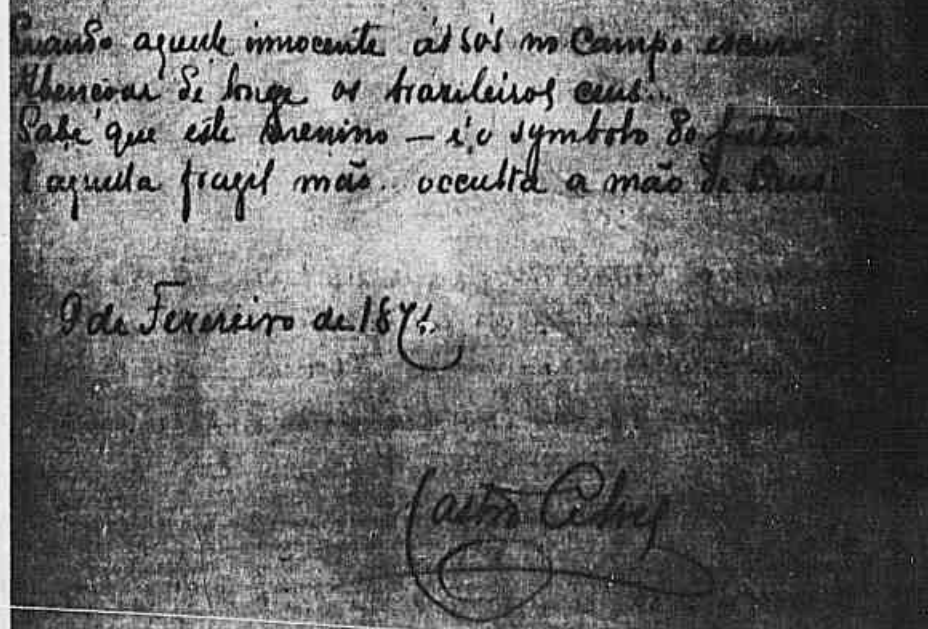 Quando aquelle innocente ás sós no Campo escuro
Abençoar de longe os brazileiros ceus...
Sabe que este menino — é o symbolo do futuro
E aquella fragil mão.. occulta a mão de Deus!
9 de Fevereiro de 1871.
Castro Alves